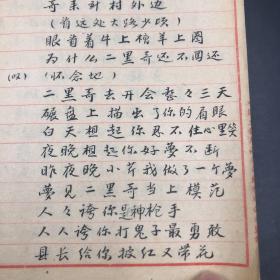 哥来到村外边
(首远处大路少顷)
眼首着牛上榜羊上圈
为什么二黑哥还不回还
(叹) (怀念地)
二黑哥去开会整々三天
碾盘上描出了你的眉眼
白天想起你忍不住心里笑
夜晚想起你好梦不断
昨夜晚小芹我做了一个梦
夢见二黑哥当上模范
人々誇你是神枪手
人人誇你打鬼子最勇敢
县长给你披红又带花